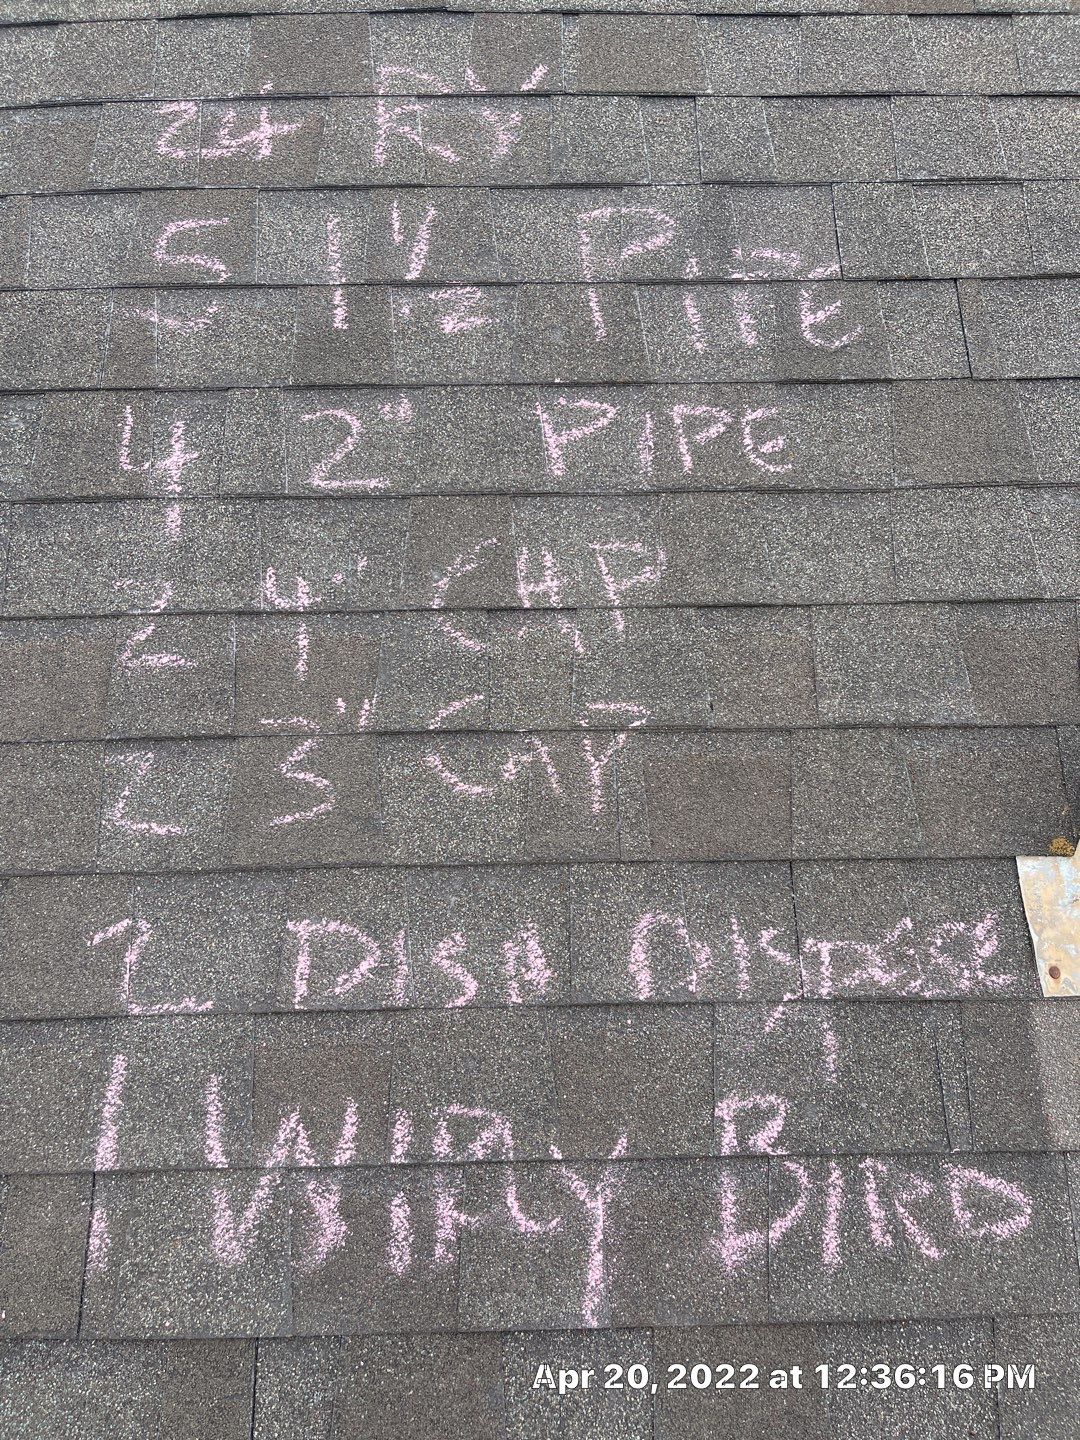 24 RV
5 1 1/2" PIPE
4 2" PIPE
2 4" CAP
2 3" CAP
2 DISH
1 BIRD
Apr 20, 2022 at 12:36:16 PM